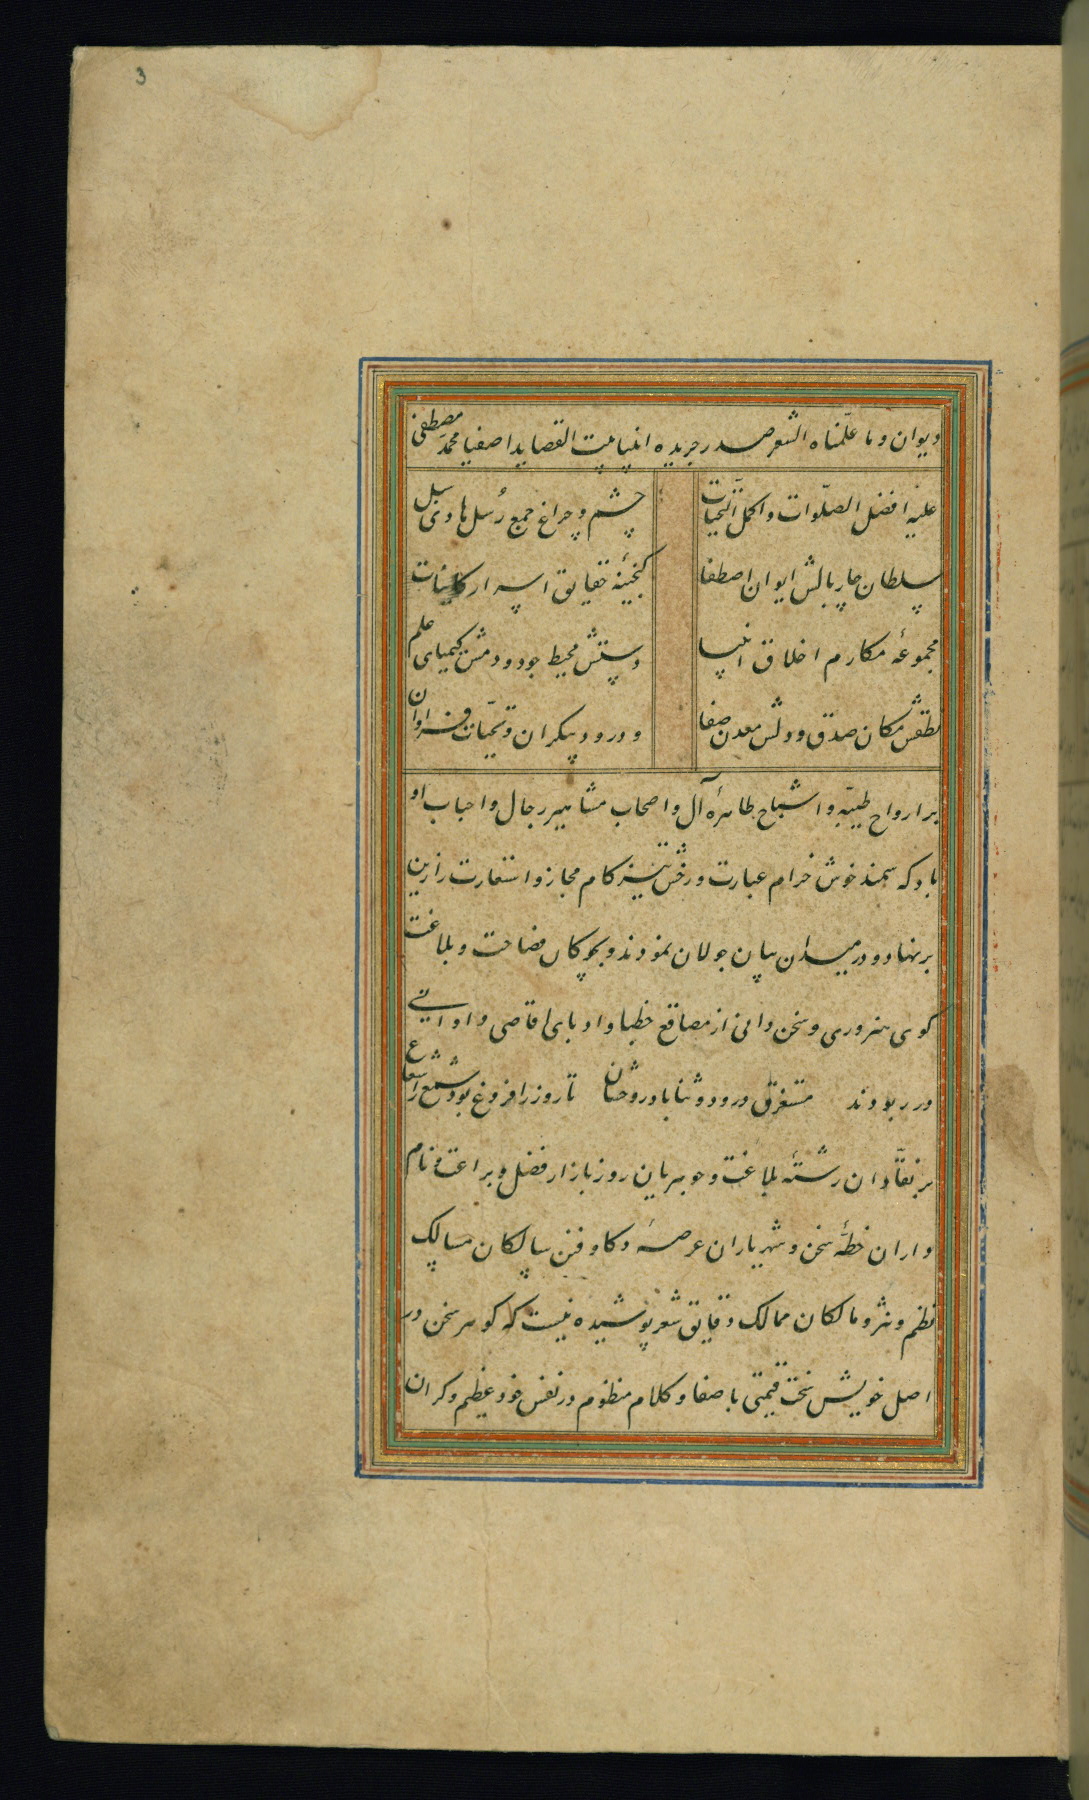 3
دیوان و ما علّمناه الشعر صدر جریده انبیا بیت القصاید اصفیا محمّد مصطفی
علیه افضل الصلّوات و اکمل التحیّات
چشم و چراغ جمع رُسل هادی سبل
سلطان چار بالش ایوان اصطفا
گنجینهٔ حقایق اسرار کاینات
مجموعهٔ مکارم اخلاق انبیا
دستش محیط جود و دمش کیمیای علم
نطقش مکان صدق و دلش معدن صفا
و درود بیکران و تحیّات فراوان
بر ارواح طیبّه و اشباح طاهرهٔ آل و اصحاب مشاهیر رجال و احباب او
باد که سمند خوش خرام عبارت و رخش تیز کام مجاز و استعارت را زین
برنهاد و در میدان بیان جولان نمودند و بچوکان فصاحت و بلاغت
کوی هنروری و سخن دانی از مصاقع خطبا و ادبای اقاصی و ادانی
در ربودند مستغرق درود و ثنا باد روحشان تا روز را فروغ بود و شمع را شعاع
بر نقّادان رشتهٔ بلاغت و جوهریان روز بازار فضل و براعت و نام
داران خطّهٔ سخن و شهریاران عرصهٔ ذکا و فتن سالکان مسالک
نظم و نثر و مالکان ممالک دقایق شعر پوشیده نیست که کوهر سخن در
اصل خویش سخت قیمتی با صفا و کلام منظوم در نفس خود عظیم و کران